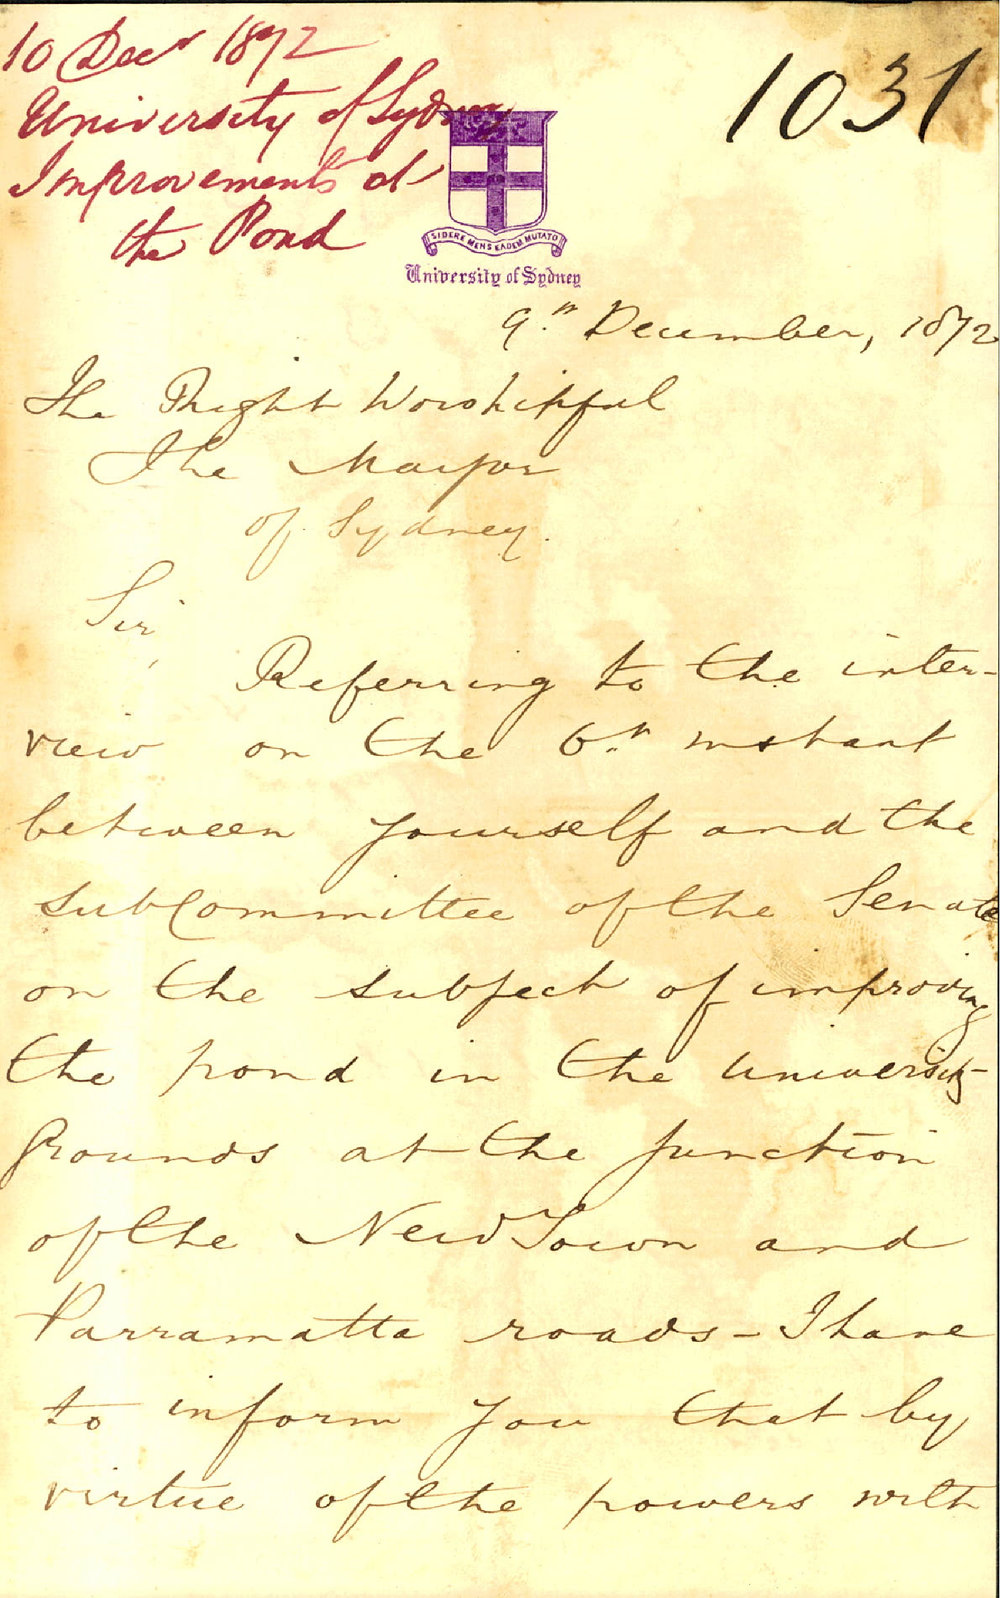 10 Decr 1872
University of Sydney
Improvements at
the Pond
1031
SIDERE MENS EADEM MUTATO
University of Sydney
9th December, 1872
The Right Worshipful
The Mayor
of Sydney.
Sir,
Referring to the inter-
view on the 6th instant
between yourself and the
subCommittee of the Senate
on the subject of improving
the pond in the University
Grounds at the junction
of the NewTown and
Parramatta roads - I have
to inform you that by
virtue of the powers with